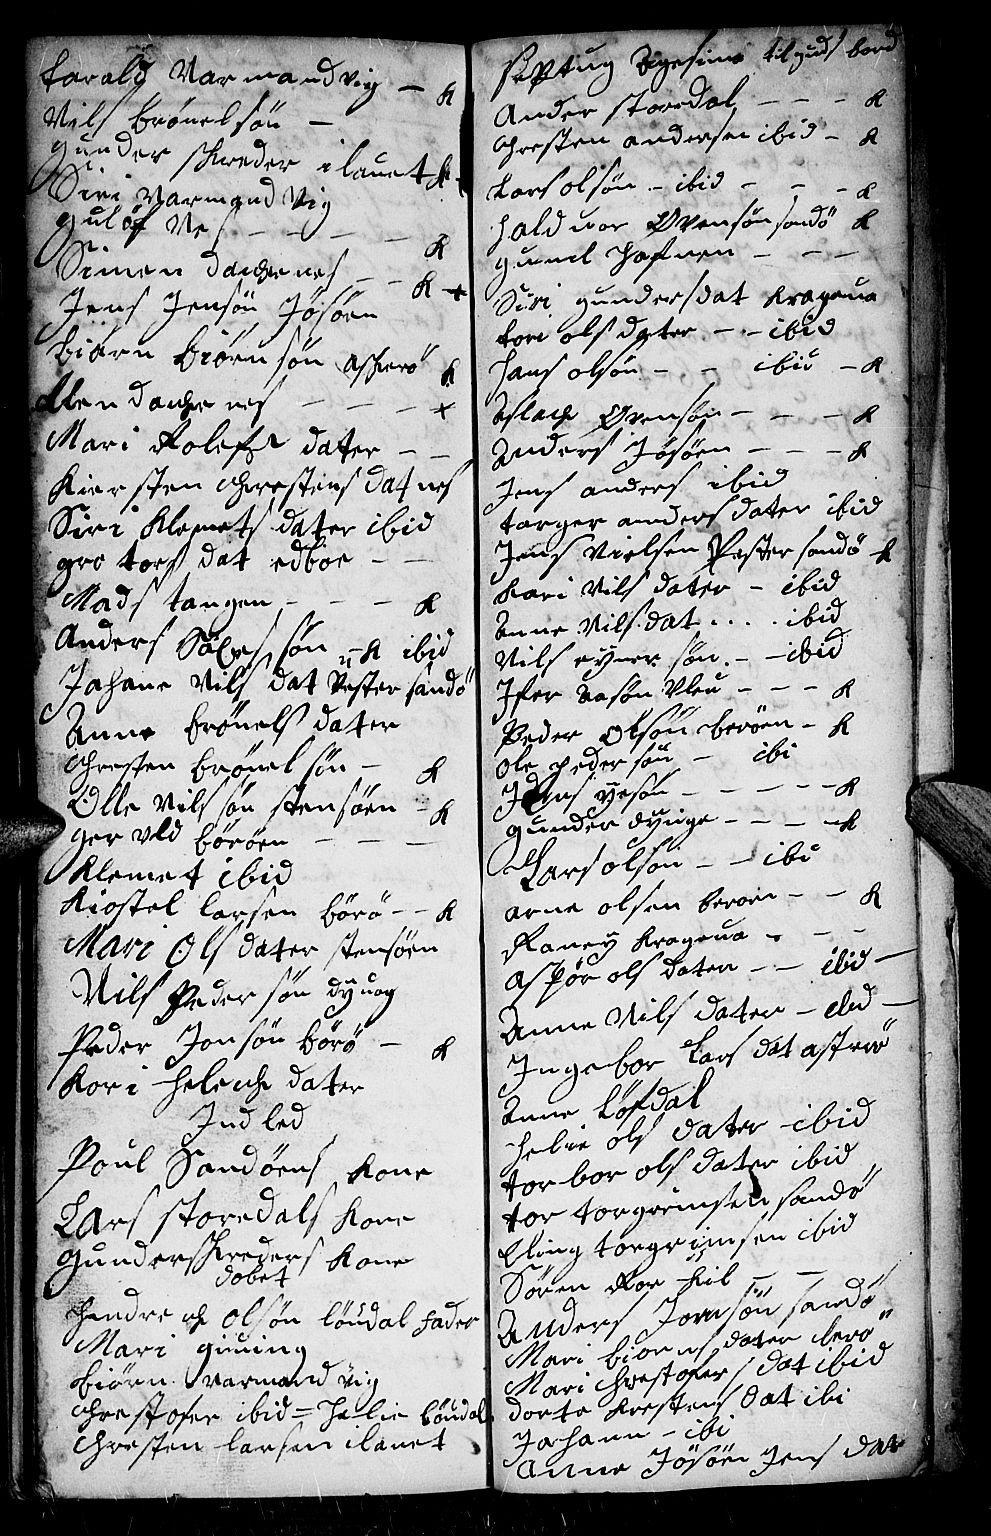 Harald Varmandvig – K
Nils brönelsön –
gunder skreder ilanet K –
Siri Varmandvig
guløf Nes – – – – K
Simen dackenes – – K +
Jens Jensøn Jösöen
biörn biörnsön askerö K
Ellen dackenes – – – +
Mari Rolefs dater – –
Kiersten Chrestens dat nes
Siri Klemets dater ibid
gro tors dat edboe – –
Mads tangen – – – K
Anders sön – K ibid
Johane Nils dat Vester sandö
Anne brönels dater
Chresten brönelsön – K
Olle Nilsøn stensöen – K
ger vld böröen – – –
Klemet ibid
Kiostel larsen börö – – K
Mari Ols dater stensöen
Nils Pedersön dyuog
Peder Jonsøn börö – K
Kari helche dater
Indled
Poul Sandöens Kone
Lars storedals Kone
gunder skreders Kone
dobet
hendrech olsøn löudal fader
Mari giuing
biörn varmandvig
Chrestofer ibid = helie löudal
Chresten larsen ilanet
septuagesima til guds bord
Ander storedal – – – K
Chresten andersen ibid – K
Lars olsön – ibid – – – K
haldvor Ovensøn sandö K
gunil hafnen – – –
Siri gundersdat Krageua
tori olsdater – – ibid
hans olsön – – ibid – K
Aslach Ovensøn – – – K
Anders Jösöen – – – K
Jens anders ibid
torger anders dater ibid
Jens Nielsen Vestersandö K
Kari Nils dater – ibid
Anne Nils dat . . . . ibid
Nils eyner søn. – – ibid
Ifer – – – K
Peder Olsøn beröen – K
Ole pedersøn – ibi
Jens – – – – – K
gunder dyuge – – – K
Lars olsøn – – ibi
arne olsen beroen – – K
Raney Krageua – – –
aspör ols daten – – ibid –
Anne Nils daten – ibid –
Ingebor Lars dat asterö
Anne Löfdal
helie ols dater ibid
torbor ols dater ibid
tor torgrimsen sandö
Eling torgrimsen ibid
Sören Kor Kil – –
Anders Jonsøn sandö
Mari biörns dater berö
Mari Chrestofers dat ibid
dorte Krestens dat ibi
Johann – ibi
Anne Jösöen Jens dat